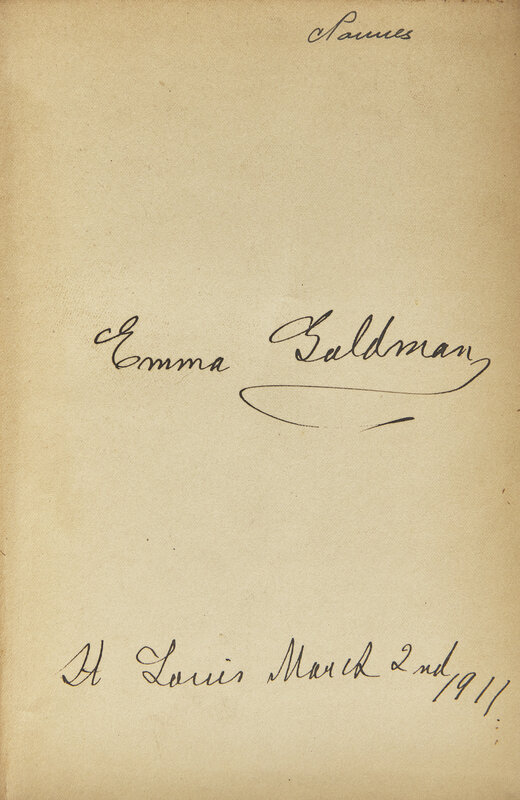 Emma Goldman
St Louis March 2nd 1911